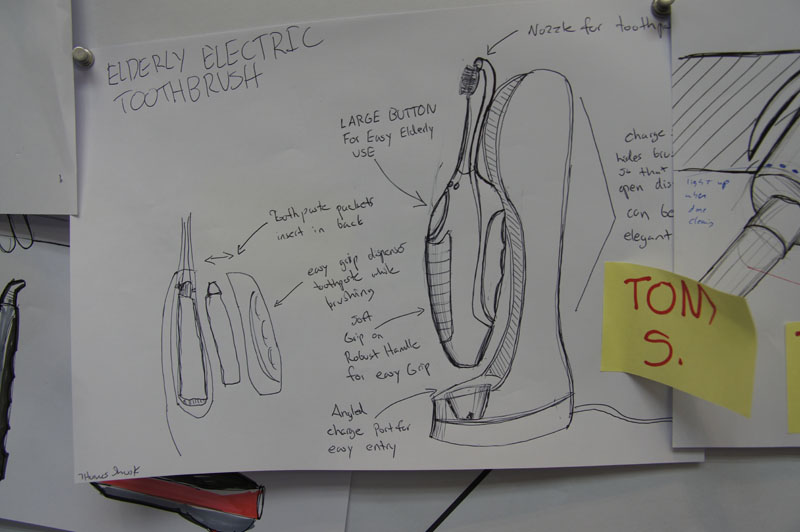 ELDERLY ELECTRIC
TOOTHBRUSH
Nozzle for toothp
LARGE BUTTON
For Easy Elderly
USE
charge
hides bru
so that
open dis
can be
elegant
Toothpaste packets
insert in back
easy grip dispenses
toothpaste while
brushing
Soft
Grip on
Robust Handle
for easy Grip
Angled
charge Port for
easy entry
light up
when
done
TONY
S.